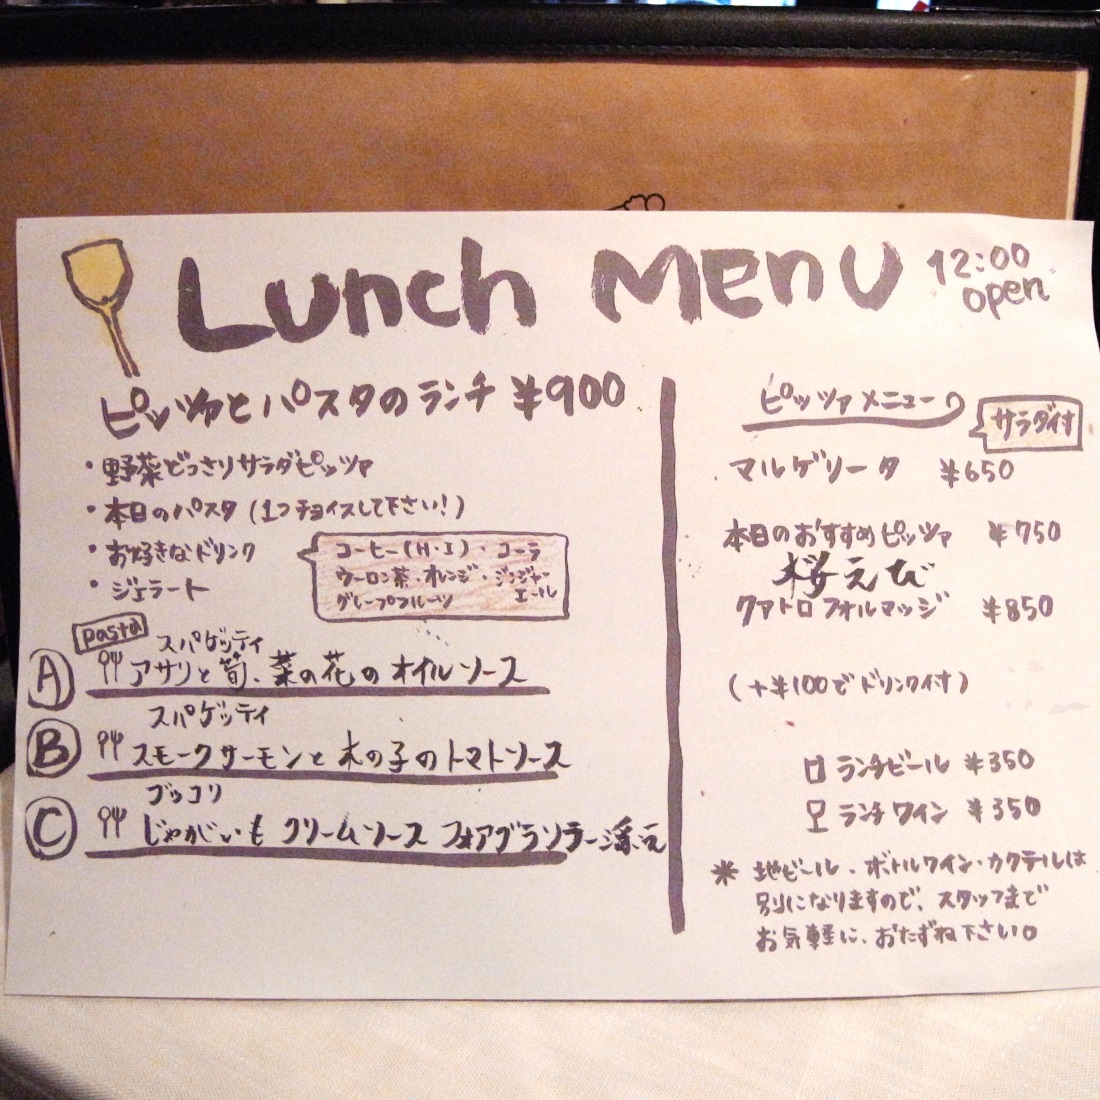 Lunch MENU
12:00
open
ピッツァとパスタのランチ ¥900
・野菜どっさりサラダピッツァ
・本日のパスタ (1つチョイスして下さい!)
・お好きなドリンク
コーヒー(H・I)・コーラ
ウーロン茶・オレンジ・ジンジャー
エール
グレープフルーツ
・ジェラート
pasta
スパゲッティ
A アサリと筍、菜の花のオイルソース
スパゲッティ
B スモークサーモンと木の子のトマトソース
ゴッコリ
C じゃがいも クリームソース フォアグラソテー添え
ピッツァメニュー
サラダ付
マルゲリータ ¥650
本日のおすすめピッツァ ¥750
桜えび
クァトロフォルマッジ ¥850
(+¥100でドリンク付)
ランチビール ¥350
ランチワイン ¥350
* 地ビール・ボトルワイン・カクテルは
別になりますので、スタッフまで
お気軽に、おたずね下さい。